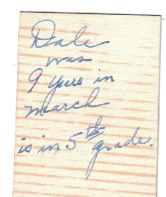 Dale
was
9 years in
march
is in 5th grade.